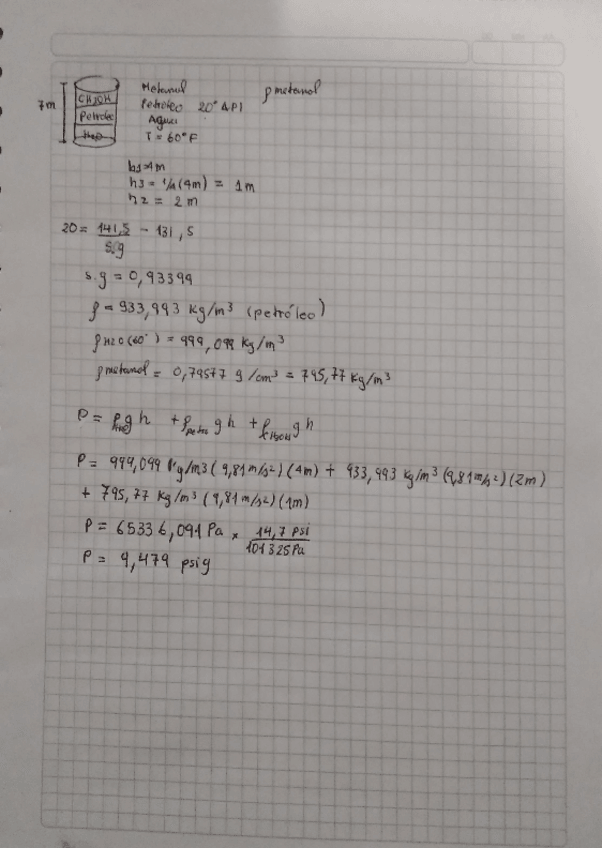 7m
CH3OH
Petroleo
H2O
Metanol ρmetanol
Petróleo 20° API
Agua
T = 60°F
h1=4m
h3 = 1/4 (4m) = 1m
h2 = 2 m
20 = 141,5/s.g - 131,5
s.g = 0,93399
ρ = 933,993 kg/m³ (petróleo)
ρH2O (60°) = 999,099 kg/m³
ρmetanol = 0,79577 g/cm³ = 795,77 kg/m³
P = ρH2O g h + ρpetro g h + ρCH3OH g h
P = 999,099 kg/m3 (9,81 m/s²) (4m) + 933,993 kg/m³ (9,81 m/s²) (2m)
+ 795,77 kg/m³ (9,81 m/s²) (1m)
P = 65336,091 Pa × 14,7 psi/101325Pa
P = 9,479 psig